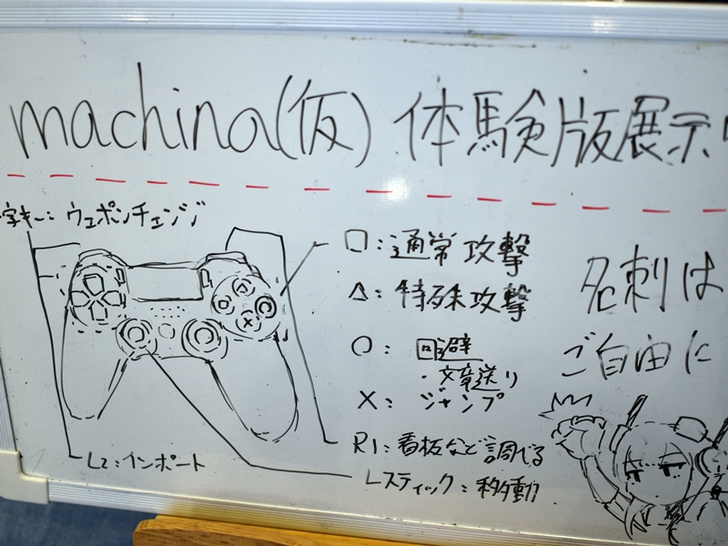 machina(仮) 体験版展示
字キー: ウェポンチェンジ
□: 通常攻撃
△: 特殊攻撃
○: 回避
・文章送り
×: ジャンプ
R1: 看板など調べる
Lスティック: 移動
L2: インポート
名刺は
ご自由に